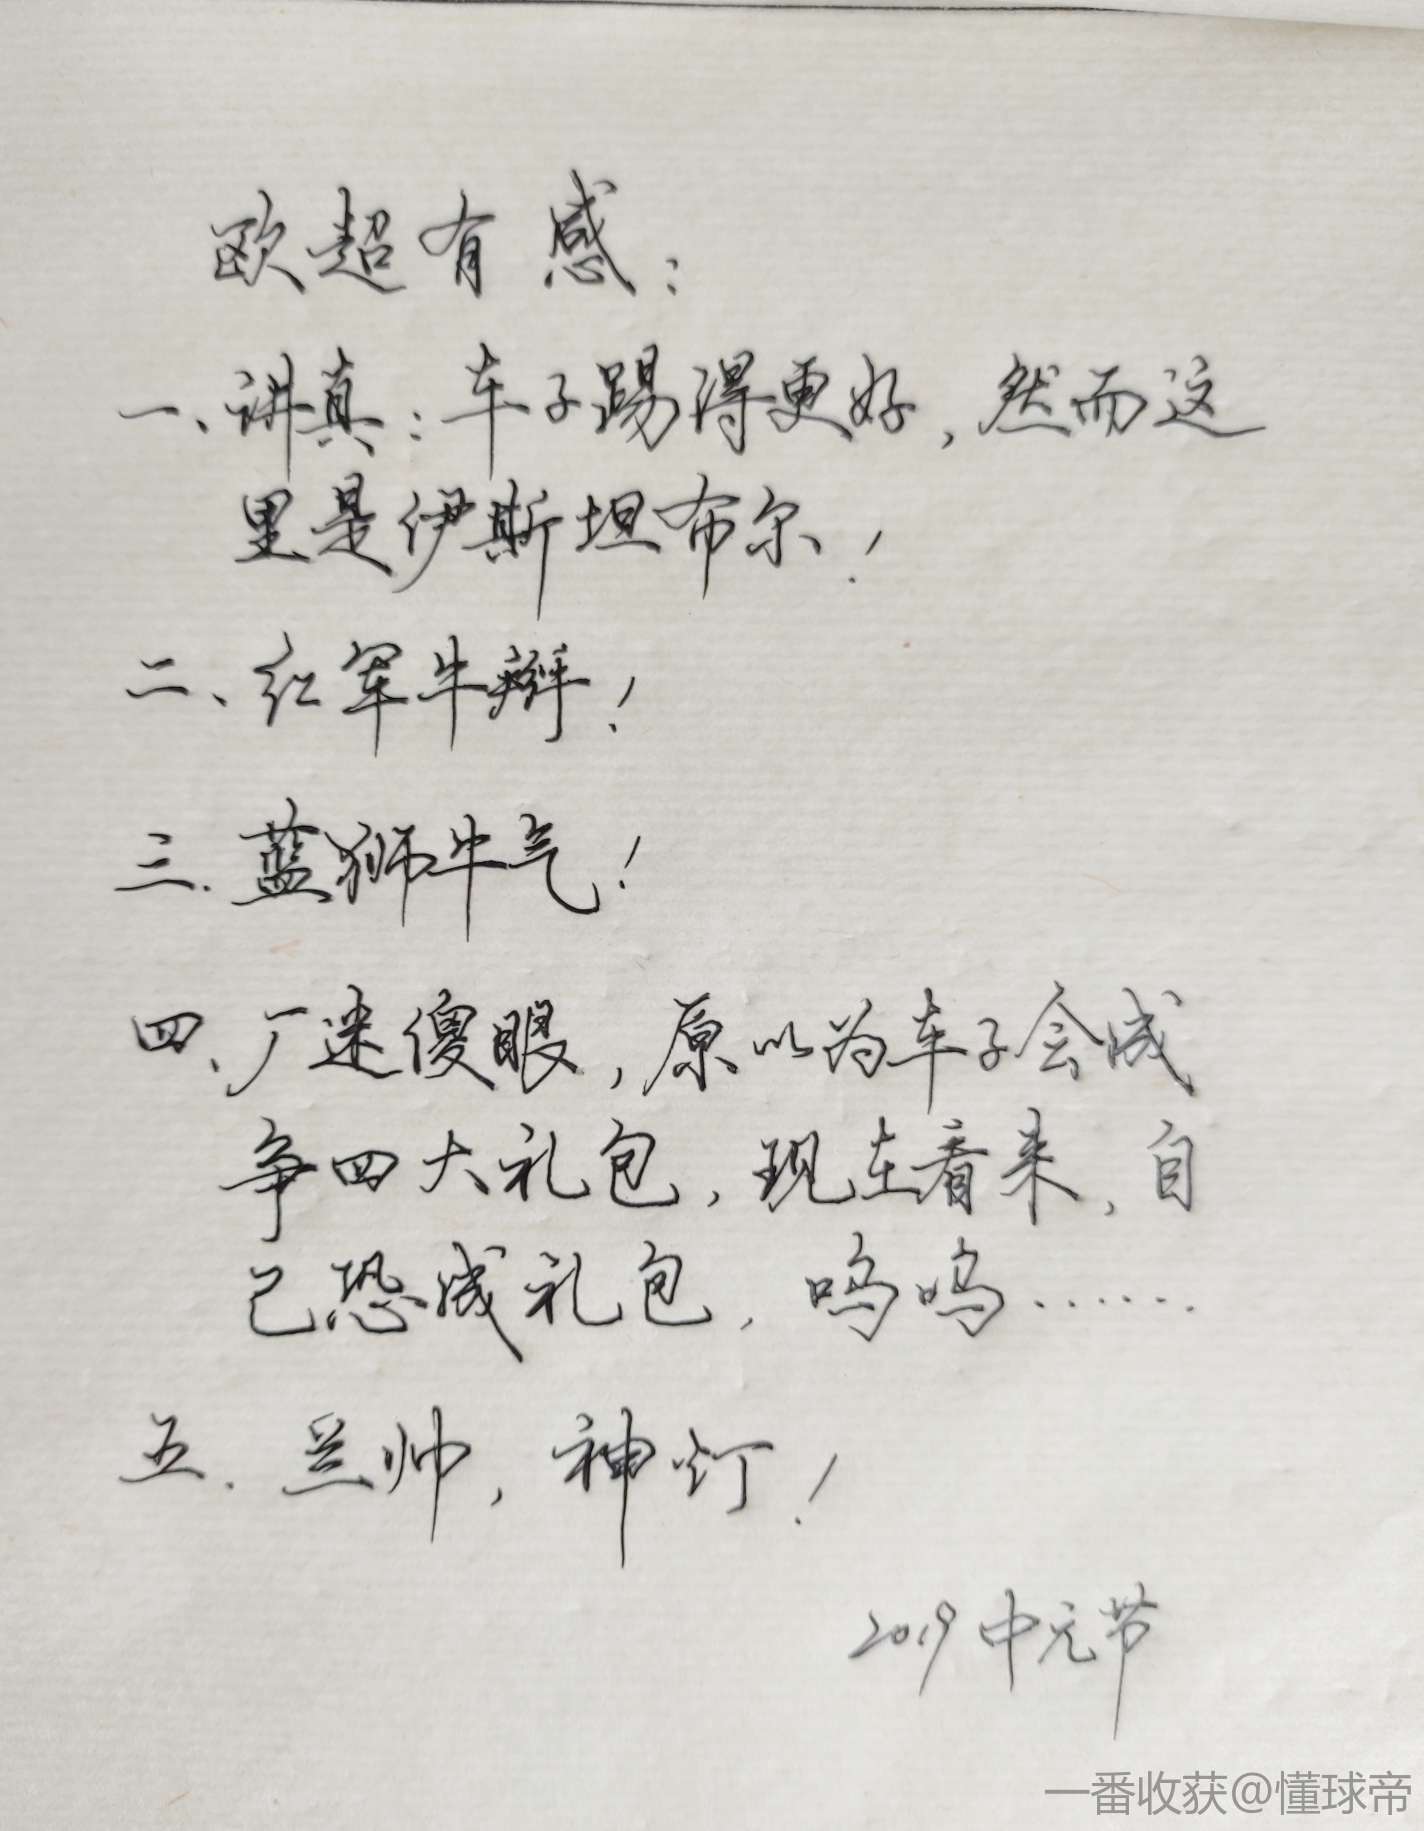 欧超有感：
一、讲真：车子踢得更好，然而这
里是伊斯坦布尔！
二、红军牛掰！
三、蓝狮牛气！
四、厂迷傻眼，原以为车子会成
争四大礼包，现在看来，自
己恐成礼包，呜呜……
五、兰帅，神灯！
2019中元节
一番收获@懂球帝